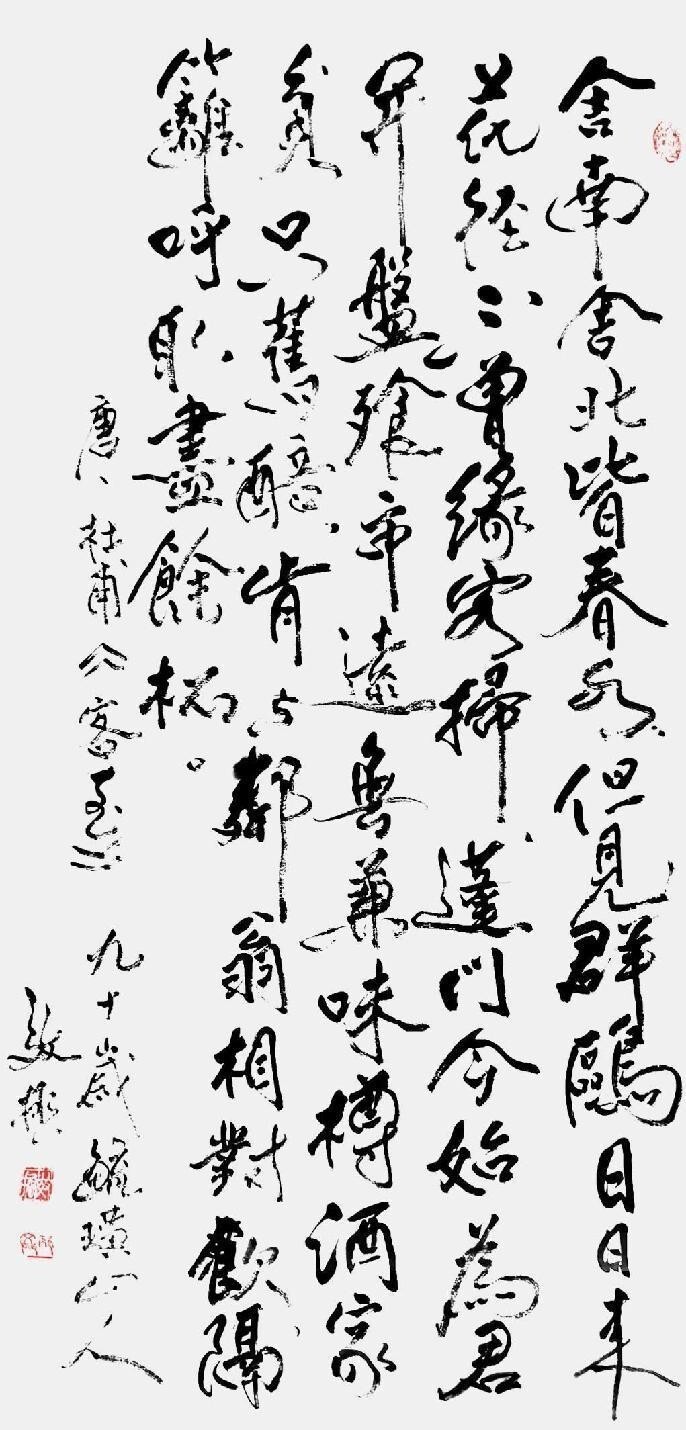 舍南舍北皆春水但見群鷗日日来
花徑不曾緣客掃蓬門今始為君
開盤飧市遠無兼味樽酒家
貧只舊醅肯与鄰翁相對飲隔
籬呼取盡餘杯。
唐杜甫客至 九十歲璜山人